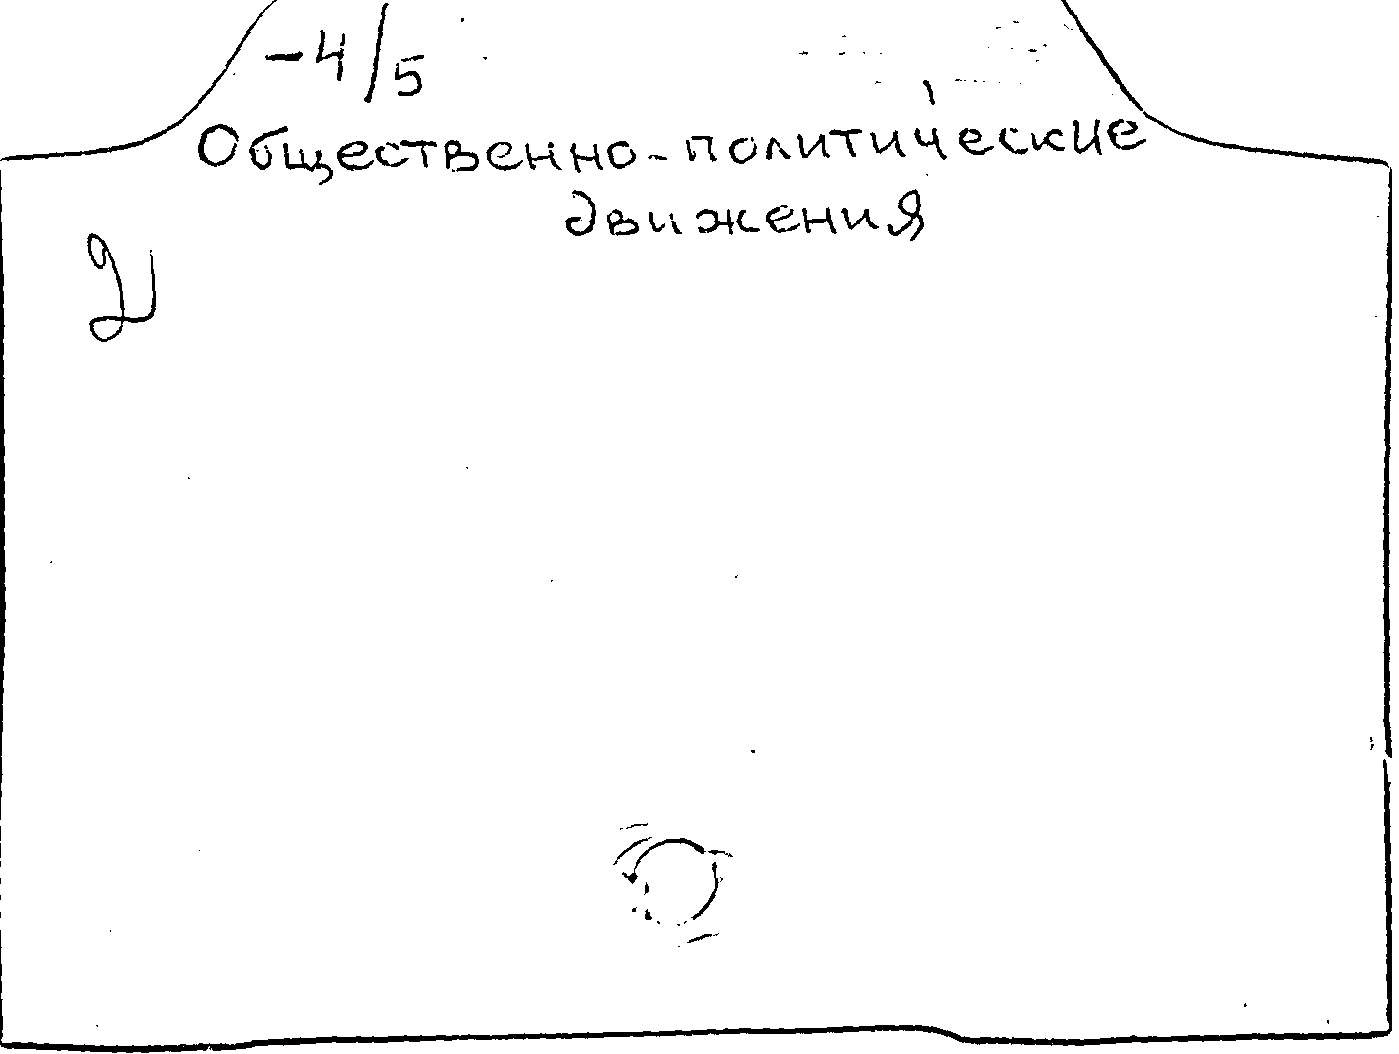 -4/5
Общественно-политические
движения